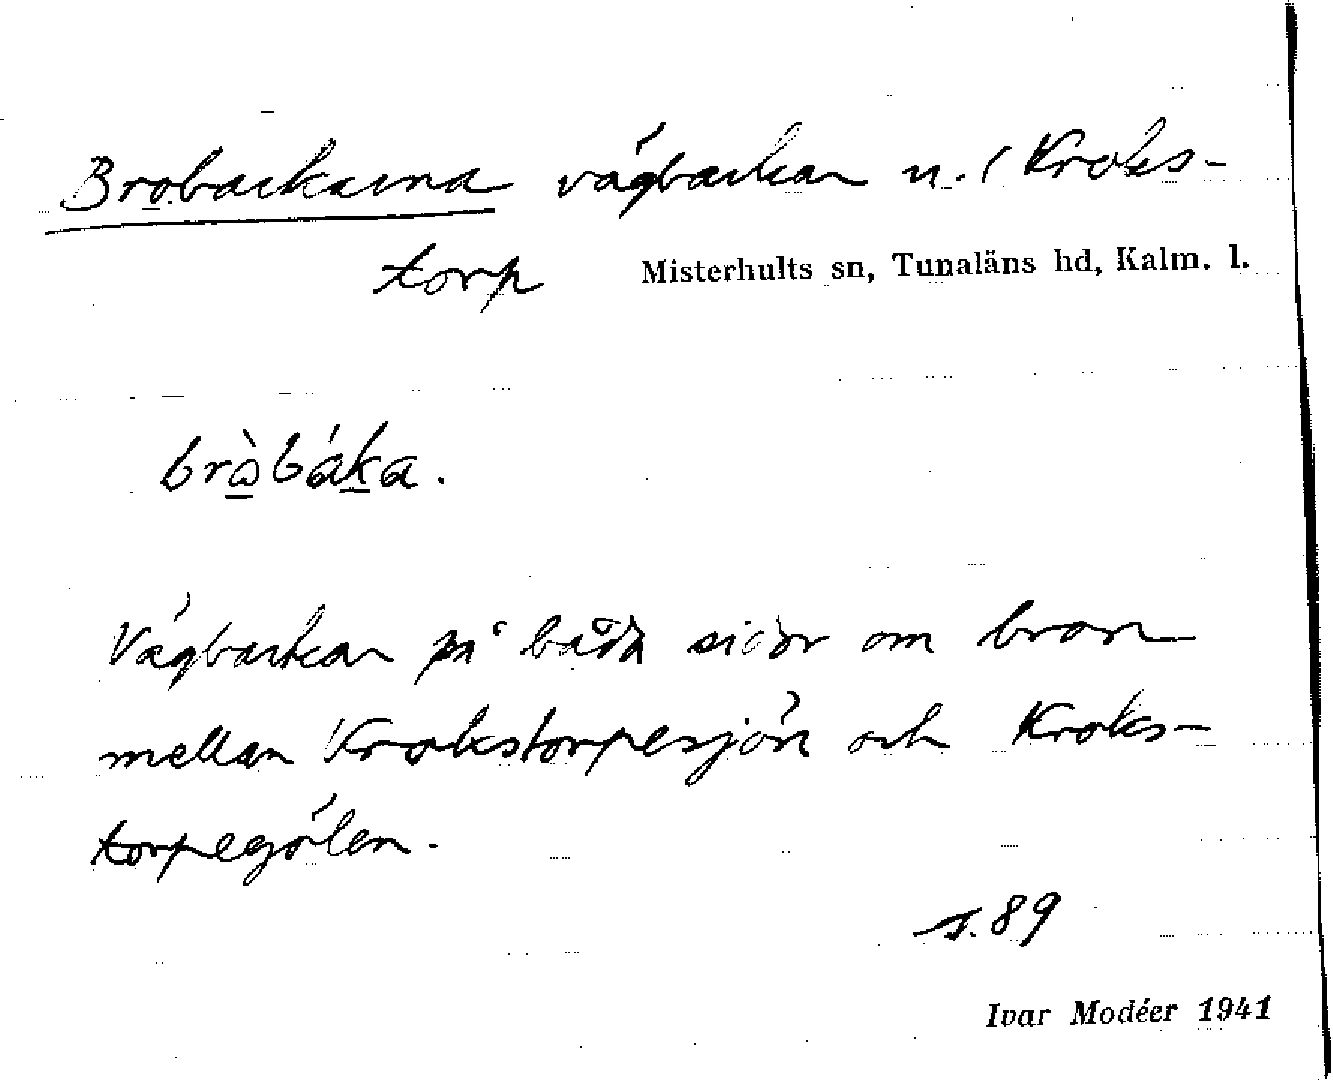 Brobackarna vägbackar u. Kroks-
torp
Misterhults sn, Tunaläns hd, Kalm. l.
brò̱báḵa.
Vägbackar på båda sidor om bron
mellan Krokstorpesjön och Kroks-
torpegölen.
s. 89
Ivar Modéer 1941